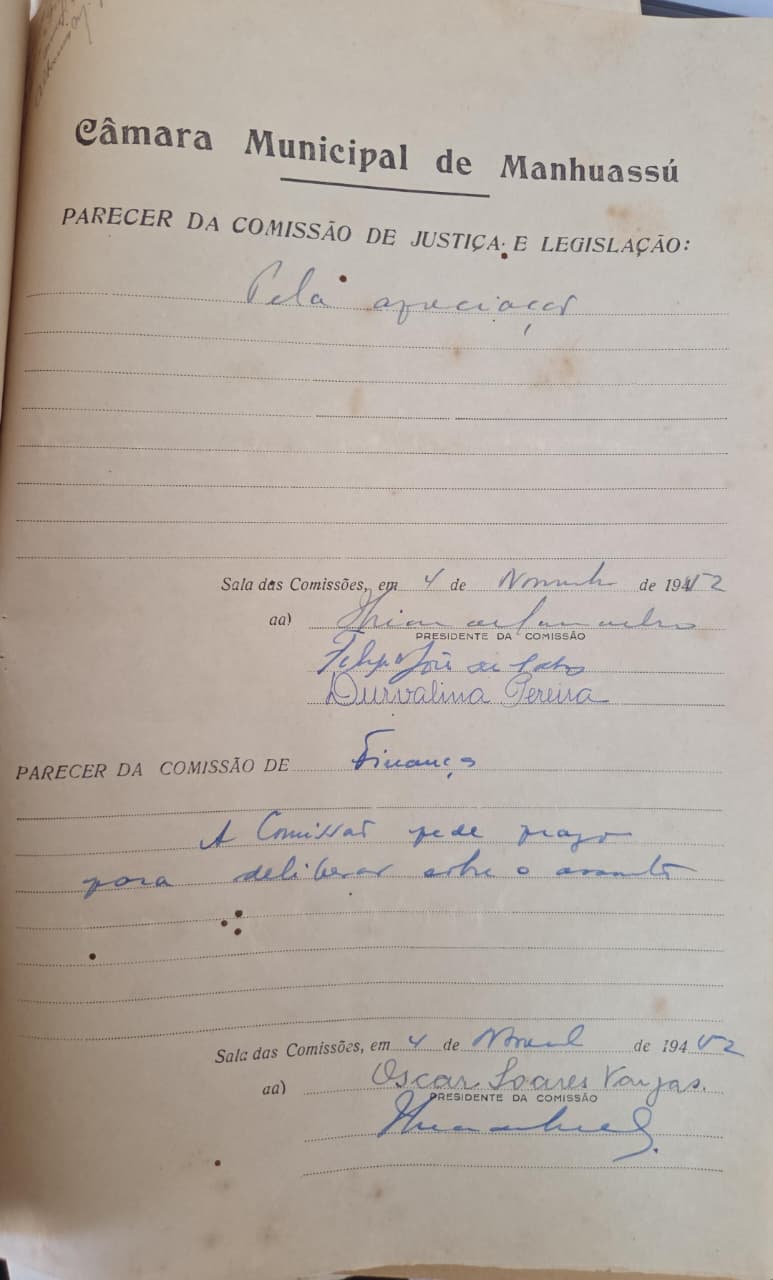 Câmara Municipal de Manhuassú
PARECER DA COMISSÃO DE JUSTIÇA E LEGISLAÇÃO:
Pela apreciação
Sala das Comissões, em 4 de Novembro de 19452
aa)
PRESIDENTE DA COMISSÃO
Felipe José de
Durvalina Pereira
PARECER DA COMISSÃO DE Finanças
A Comissão pede prazo
para deliberar sobre o assunto
Sala das Comissões, em 4 de Novembro de 19452
aa) Oscar Soares Vargas.
PRESIDENTE DA COMISSÃO